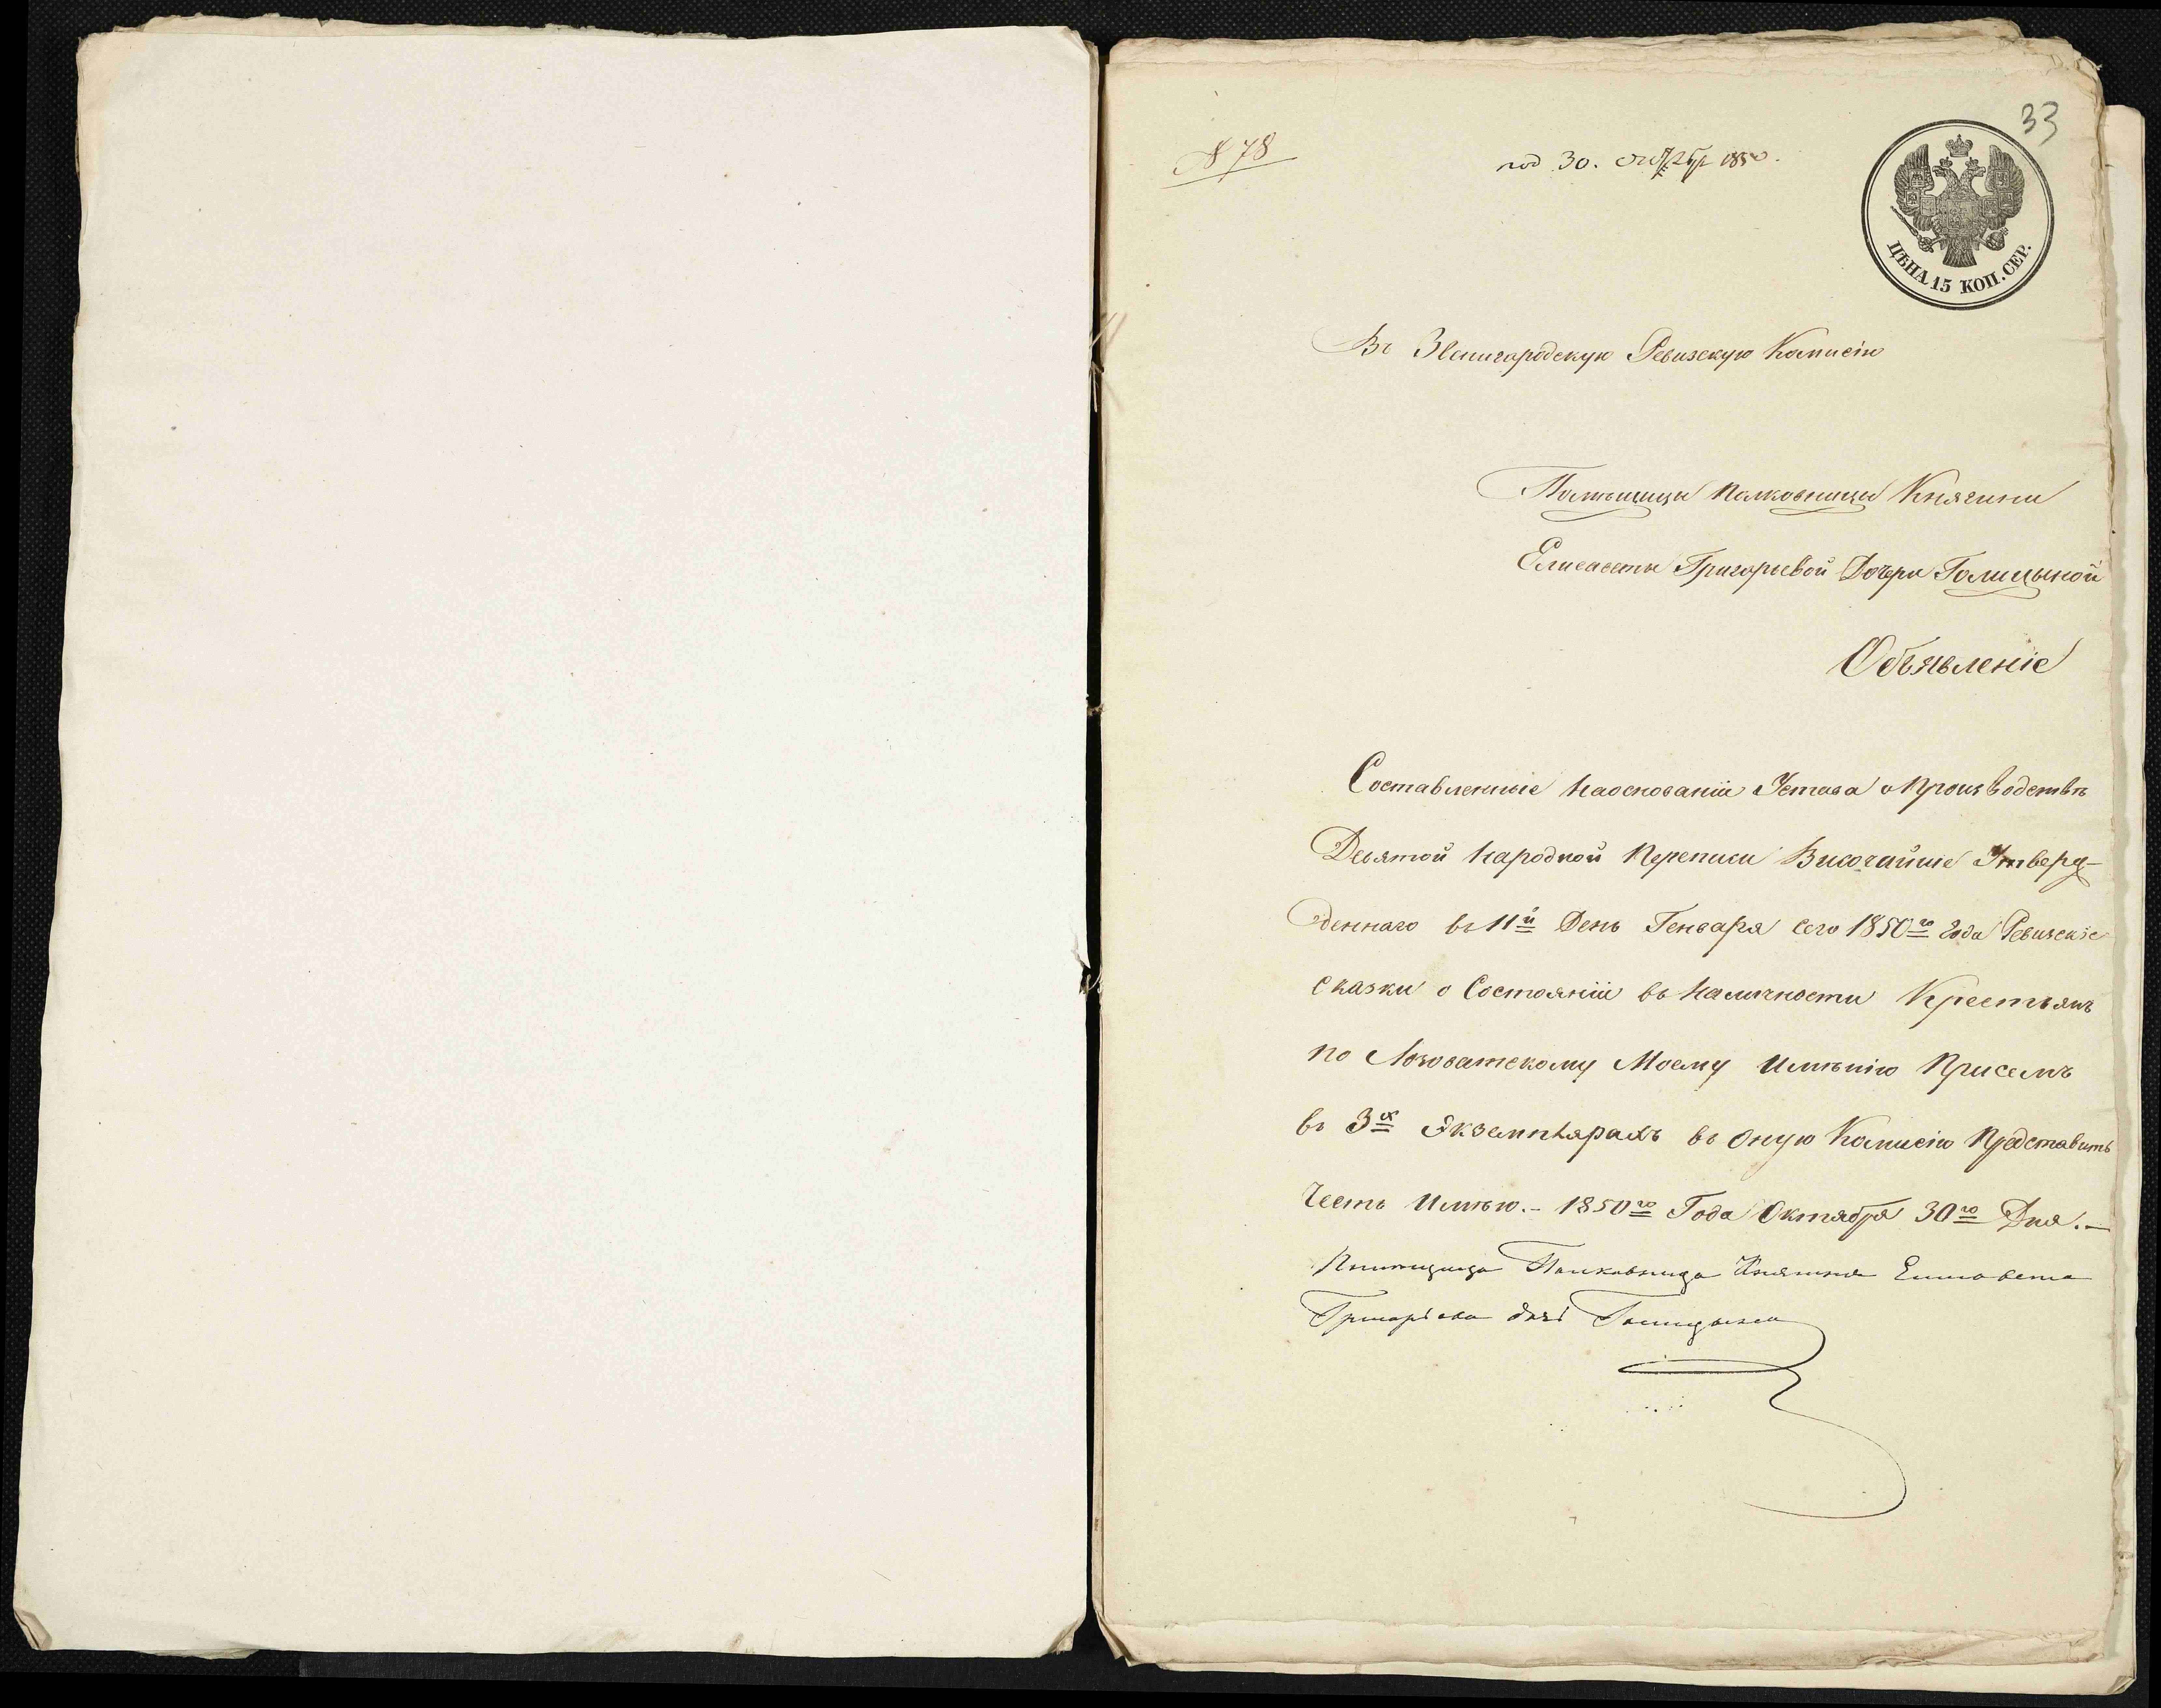 33
№ 78
под 30. октября 1850.
ЦѢНА 15 КОП. СЕР.
Въ Звенигородскую Ревизскую Комисію
Помѣщицы Полковницы Княгини
Елисаветы Григорьевой Дочери Голицыной
Объявленіе
Составленные наоснованіи Устава о производствѣ
Девятой народной Переписи Высочайше Утверж-
деннаго въ 11й День Генваря сего 1850го года Ревизскіе
сказки о Состояніи въ наличности Крестьянъ
по Лозоватскому Моему Имѣнію Присемъ
въ 3х Экземплярахъ въ оную Комисію Представить
Честь Имѣю.- 1850го Года Октября 30го Дня.-
Помѣщица Полковница Княгиня Елисавета
Григоріева дочь Голицына